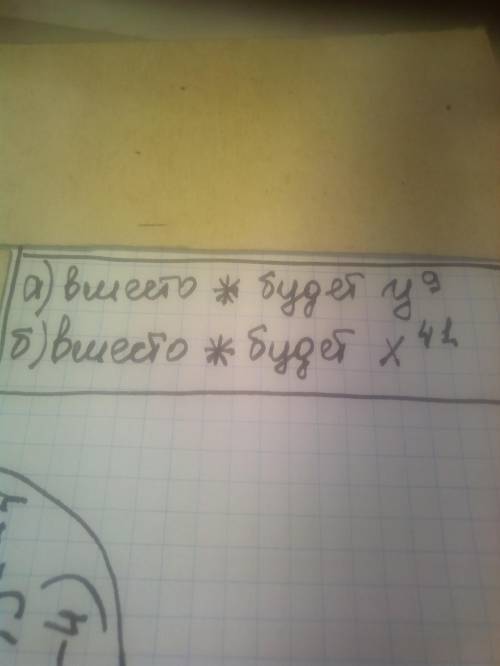 а) вместо * будет y⁹
б) вместо * будет x⁴¹
-4)